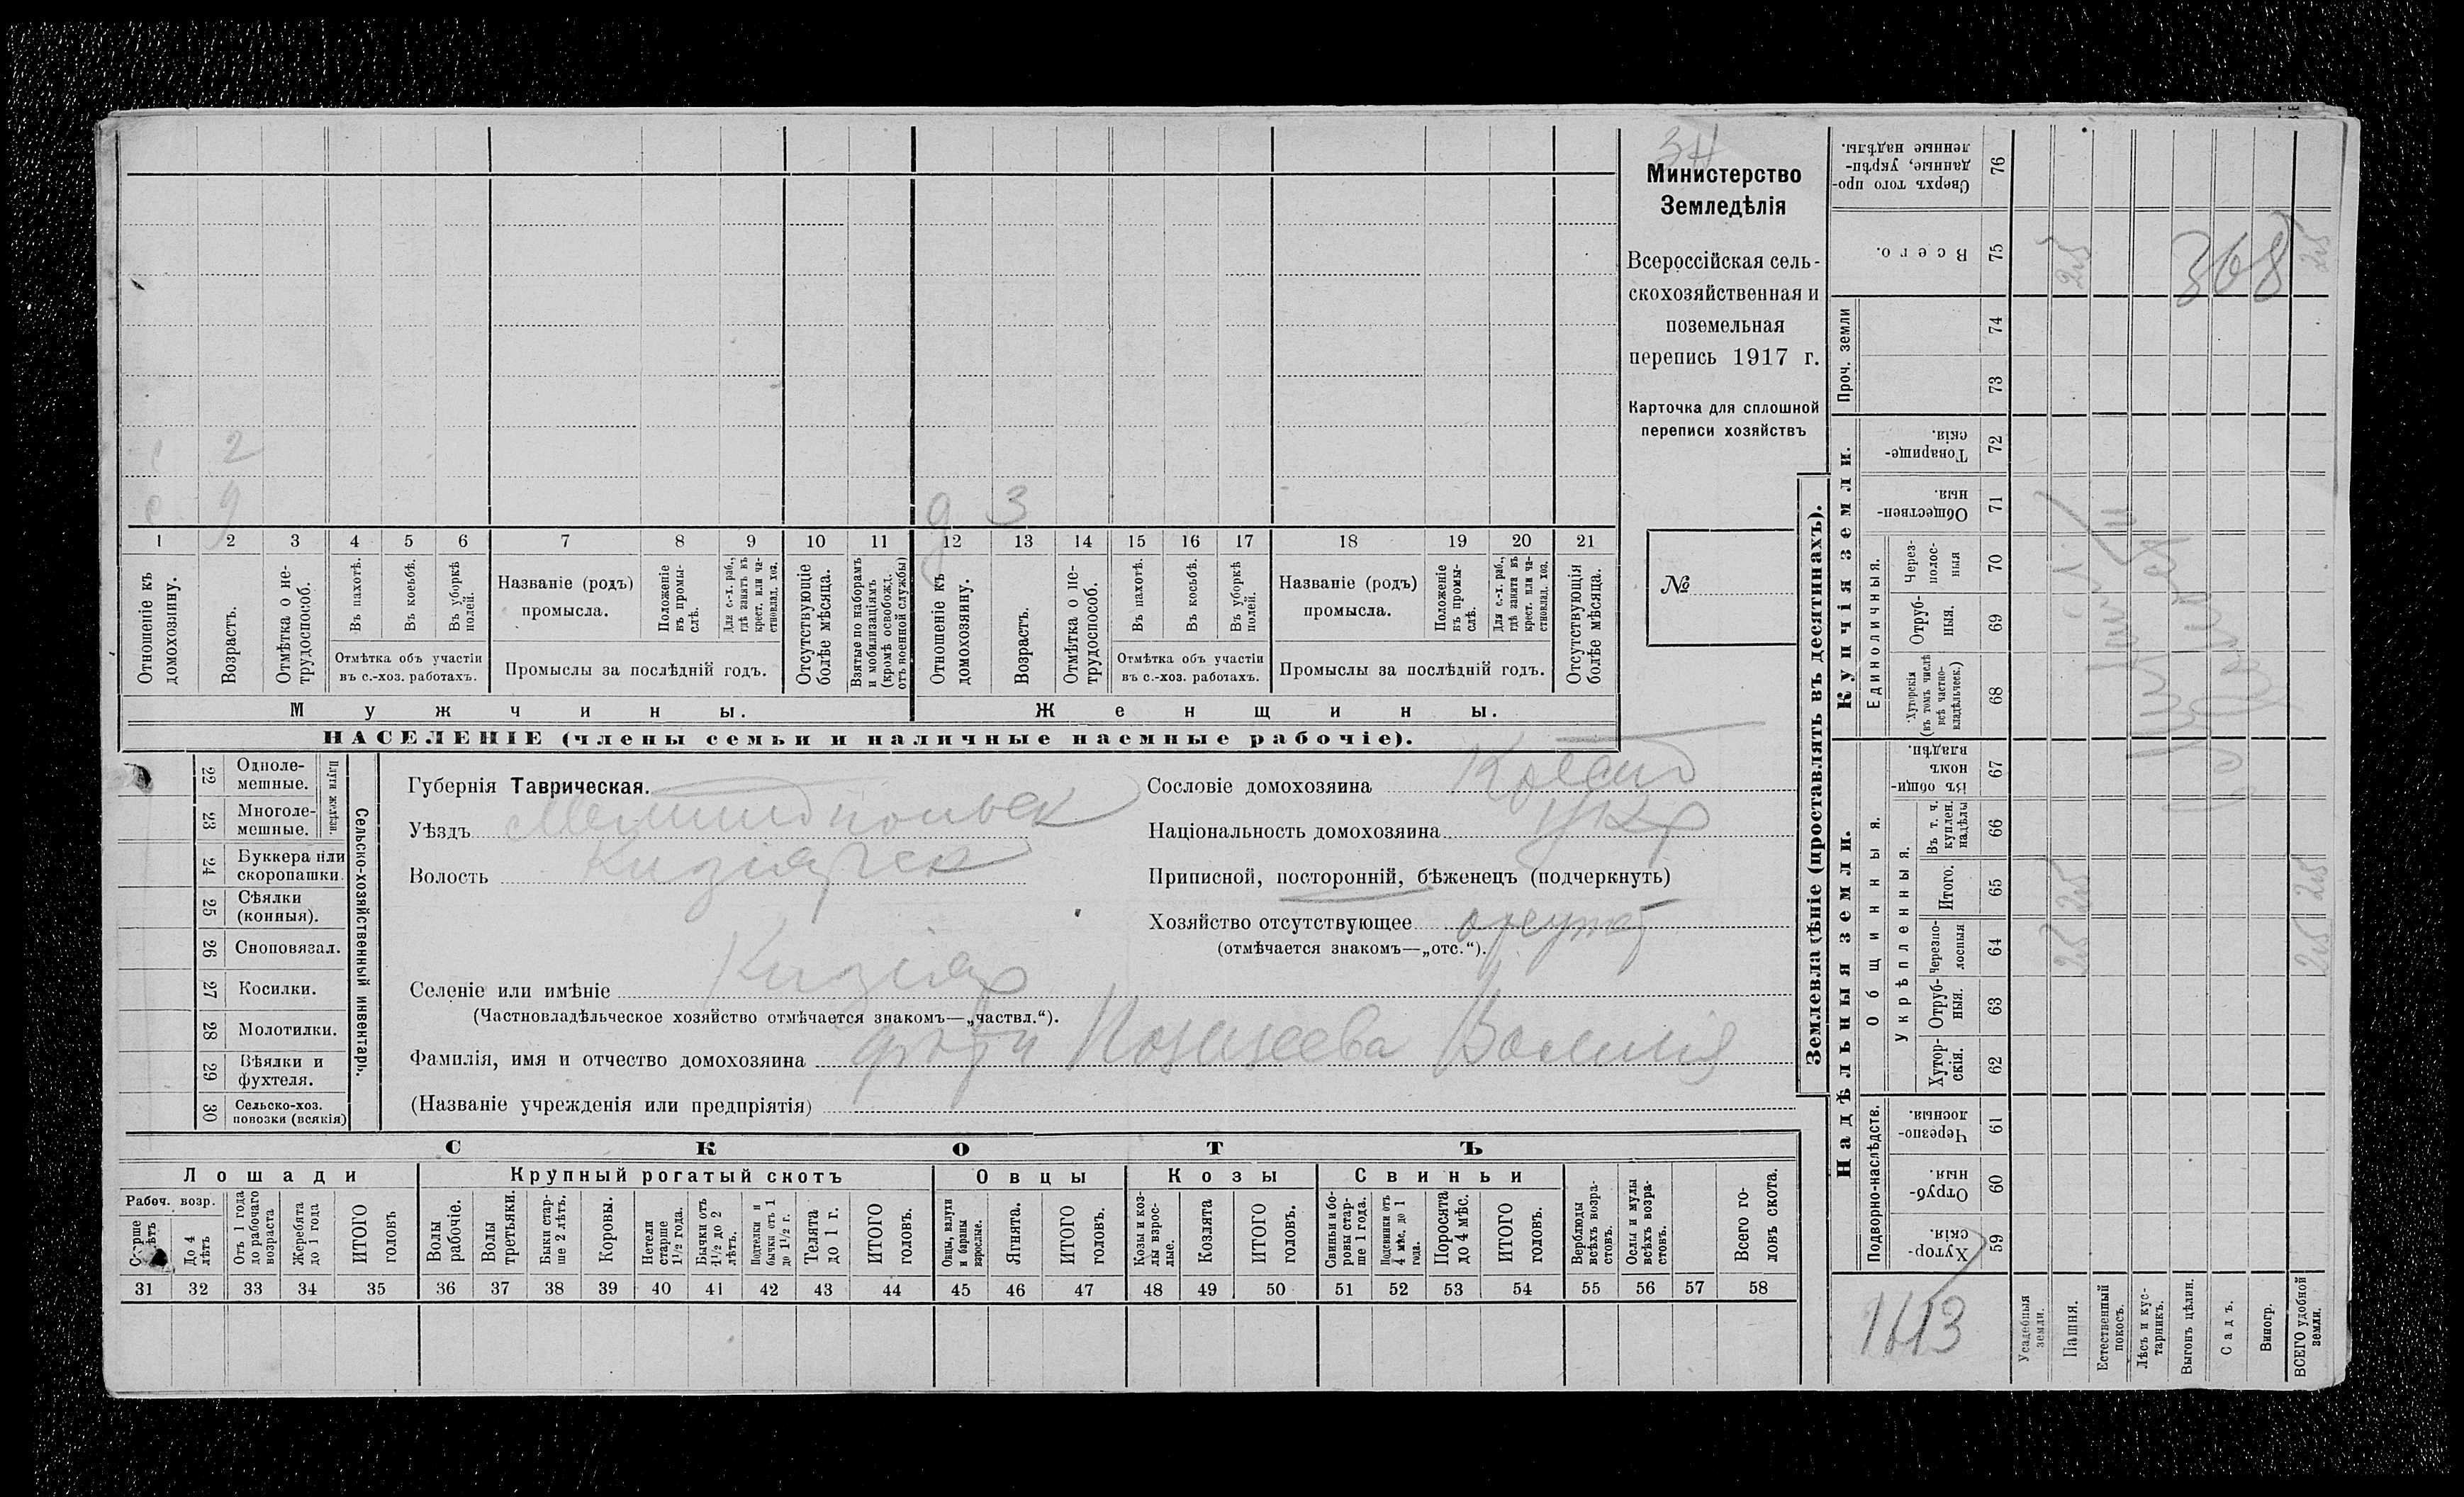 Министерство
Земледѣлія
Всероссійская сель-
скохозяйственная и
поземельная
перепись 1917 г.
Карточка для сплошной
переписи хозяйствъ
№
2
9
д 3
1 2 3 4 5 6 7 8 9 10 11 12 13 14 15 16 17 18 19 20 21
Отношеніе къ домохозяину.
Возрастъ.
Отмѣтка о не-трудоспособ.
Въ пахотѣ.
Въ косьбѣ.
Въ уборкѣ полей.
Отмѣтка объ участіи
въ с.-хоз. работахъ.
Названіе (родъ)
промысла.
Положеніе въ промы-слѣ.
Для с.-х. раб., гдѣ занятъ въ крест. или ча-стновлад. хоз.
Промыслы за послѣдній годъ.
Отсутствующіе болѣе мѣсяца.
Взятые по наборамъ и мобилизаціямъ (кромѣ освобожд. отъ военной службы)
Отношеніе къ домохозяину.
Возрастъ.
Отмѣтка о не-трудоспособ.
Въ пахотѣ.
Въ косьбѣ.
Въ уборкѣ полей.
Отмѣтка объ участіи
въ с.-хоз. работахъ.
Названіе (родъ)
промысла.
Положеніе въ промы-слѣ.
Для с.-х. раб., гдѣ занята въ крест. или ча-стновлад. хоз.
Промыслы за послѣдній годъ.
Отсутствующія болѣе мѣсяца.
Мужчины.
Женщины.
НАСЕЛЕНІЕ (члены семьи и наличные наемные рабочіе).
Сельско-хозяйственный инвентарь.
Плуги желѣзн.
22 Одноле-мешные.
23 Многоле-мешные.
24 Буккера или скоропашки.
25 Сѣялки (конныя).
26 Сноповязал.
27 Косилки.
28 Молотилки.
29 Вѣялки и фухтеля.
30 Сельско-хоз. повозки (всякія)
Губернія Таврическая.
Уѣздъ Мелитопольск
Волость Кизіярск
Селеніе или имѣніе Кизіяр
(Частновладѣльческое хозяйство отмѣчается знакомъ—„частвл.“).
Фамилія, имя и отчество домохозяина Василія
(Названіе учрежденія или предпріятія)
Сословіе домохозяина Крест
Національность домохозяина укр
Приписной, посторонній, бѣженецъ (подчеркнуть)
Хозяйство отсутствующее отсутст
(отмѣчается знакомъ—„отс.“).
СКОТЪ
Лошади
Рабоч. возр.
До 4 лѣтъ
Отъ 1 года до рабочаго возраста
Жеребята до 1 года
ИТОГО головъ
Крупный рогатый скотъ
Волы рабочіе.
Волы третьяки.
Быки стар-ше 2 лѣтъ.
Коровы.
Нетели старше 1½ года.
Бычки отъ 1½ до 2 лѣтъ.
Подтелки и бычки отъ 1 до 1½ г.
Телята до 1 г.
ИТОГО головъ.
Овцы
Овцы, валухи и бараны взрослые.
Ягнята.
ИТОГО головъ.
Козы
Козы и коз-лы взрос-лые.
Козлята
ИТОГО головъ.
Свиньи
Свиньи и бо-ровы стар-ше 1 года.
Подсвинки отъ 4 мѣс. до 1 года.
Поросята до 4 мѣс.
ИТОГО головъ.
Верблюды всѣхъ возра-стовъ.
Ослы и мулы всѣхъ возра-стовъ.
Всего го-ловъ скота.
31 32 33 34 35 36 37 38 39 40 41 42 43 44 45 46 47 48 49 50 51 52 53 54 55 56 57 58
Землевладѣніе (проставлять въ десятинахъ).
Надѣльныя земли.
Подворно-наслѣдств.
Хутор-скія. 59
Отруб-ныя. 60
Черезпо-лосныя. 61
Общинныя.
Укрѣпленныя.
Хутор-скія. 62
Отруб-ныя. 63
Черезпо-лосныя 64
Итого. 65
Въ т. ч. куплен. надѣлы 66
Въ общи-номъ владѣн. 67
Купчія земли.
Единоличныя.
Хуторскія (въ томъ числѣ всѣ частно-владѣльческ.) 68
Отруб-ныя. 69
Через-полос-ныя 70
Обществен-ныя. 71
Товарище-скія. 72
Проч. земли
73
74
Всего. 75
Сверхъ того про-данные, укрѣп-ленные надѣлы. 76
Усадебныя земли.
Пашня.
Естественный покосъ.
Лѣсъ и кус-тарникъ.
Выгонъ цѣлин.
Садъ.
Виногр.
ВСЕГО удобной земли.
368